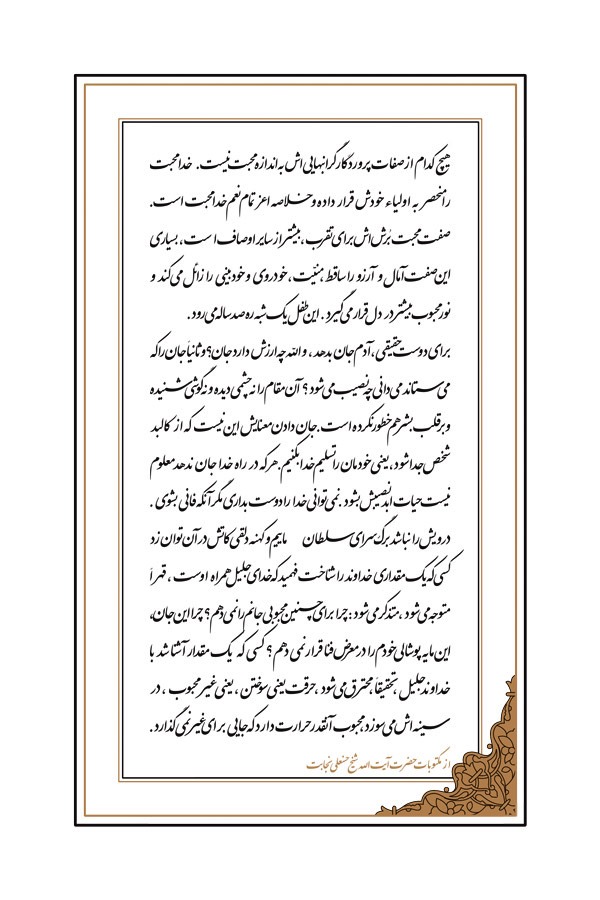 هیچ کدام از صفات پروردگار گرانبهایی اش به اندازه محبت نیست. خدا محبت
را منحصر به اولیاء خودش قرار داده و خلاصه اعز تمام نعم خدا محبت است.
صفت محبت بُرش اش برای تقرب، بیشتر از سایر اوصاف است، بسیاری
این صفت آمال و آرزو را ساقط، منیّت، خودروی و خودبینی را زائل می کند و
نور محبوب بیشتر در دل قرار می گیرد. این طفل یک شبه ره صد ساله می رود.
برای دوست حقیقی، آدم جان بدهد، والله چه ارزش دارد جان؟ و ثانیاً جان را که
می ستاند می دانی چه نصیب می شود؟ آن مقام را نه چشمی دیده و نه گوشی شنیده
و بر قلب بشر هم خطور نکرده است. جان دادن معنایش این نیست که از کالبد
شخص جدا شود، یعنی خودمان را تسلیم خدا بکنیم. هر که در راه خدا جان ندهد معلوم
نیست حیات ابد نصیبش بشود. نمی توانی خدا را دوست بداری مگر آنکه فانی بشوی.
درویش را نباشد برگ سرای سلطان ماییم و کهنه دلقی کاتش در آن توان زد
کسی که یک مقداری خداوند را شناخت فهمید که خدای جلیل همراه اوست، قهراً
متوجه می شود، متذکر می شود: چرا برای چنین محبوبی جانم را نمی دهم؟ چرا این جان،
این مایه پوشالی خودم را در معرض فنا قرار نمی دهم؟ کسی که یک مقدار آشنا شد با
خداوند جلیل، تحقیقاً محترق می شود، حرقت یعنی سوختن، یعنی غیر محبوب، در
سینه اش می سوزد، محبوب آنقدر حرارت دارد که جایی برای غیر نمی گذارد.
از مکتوبات حضرت آیت الله شیخ حسنعلی نجابت